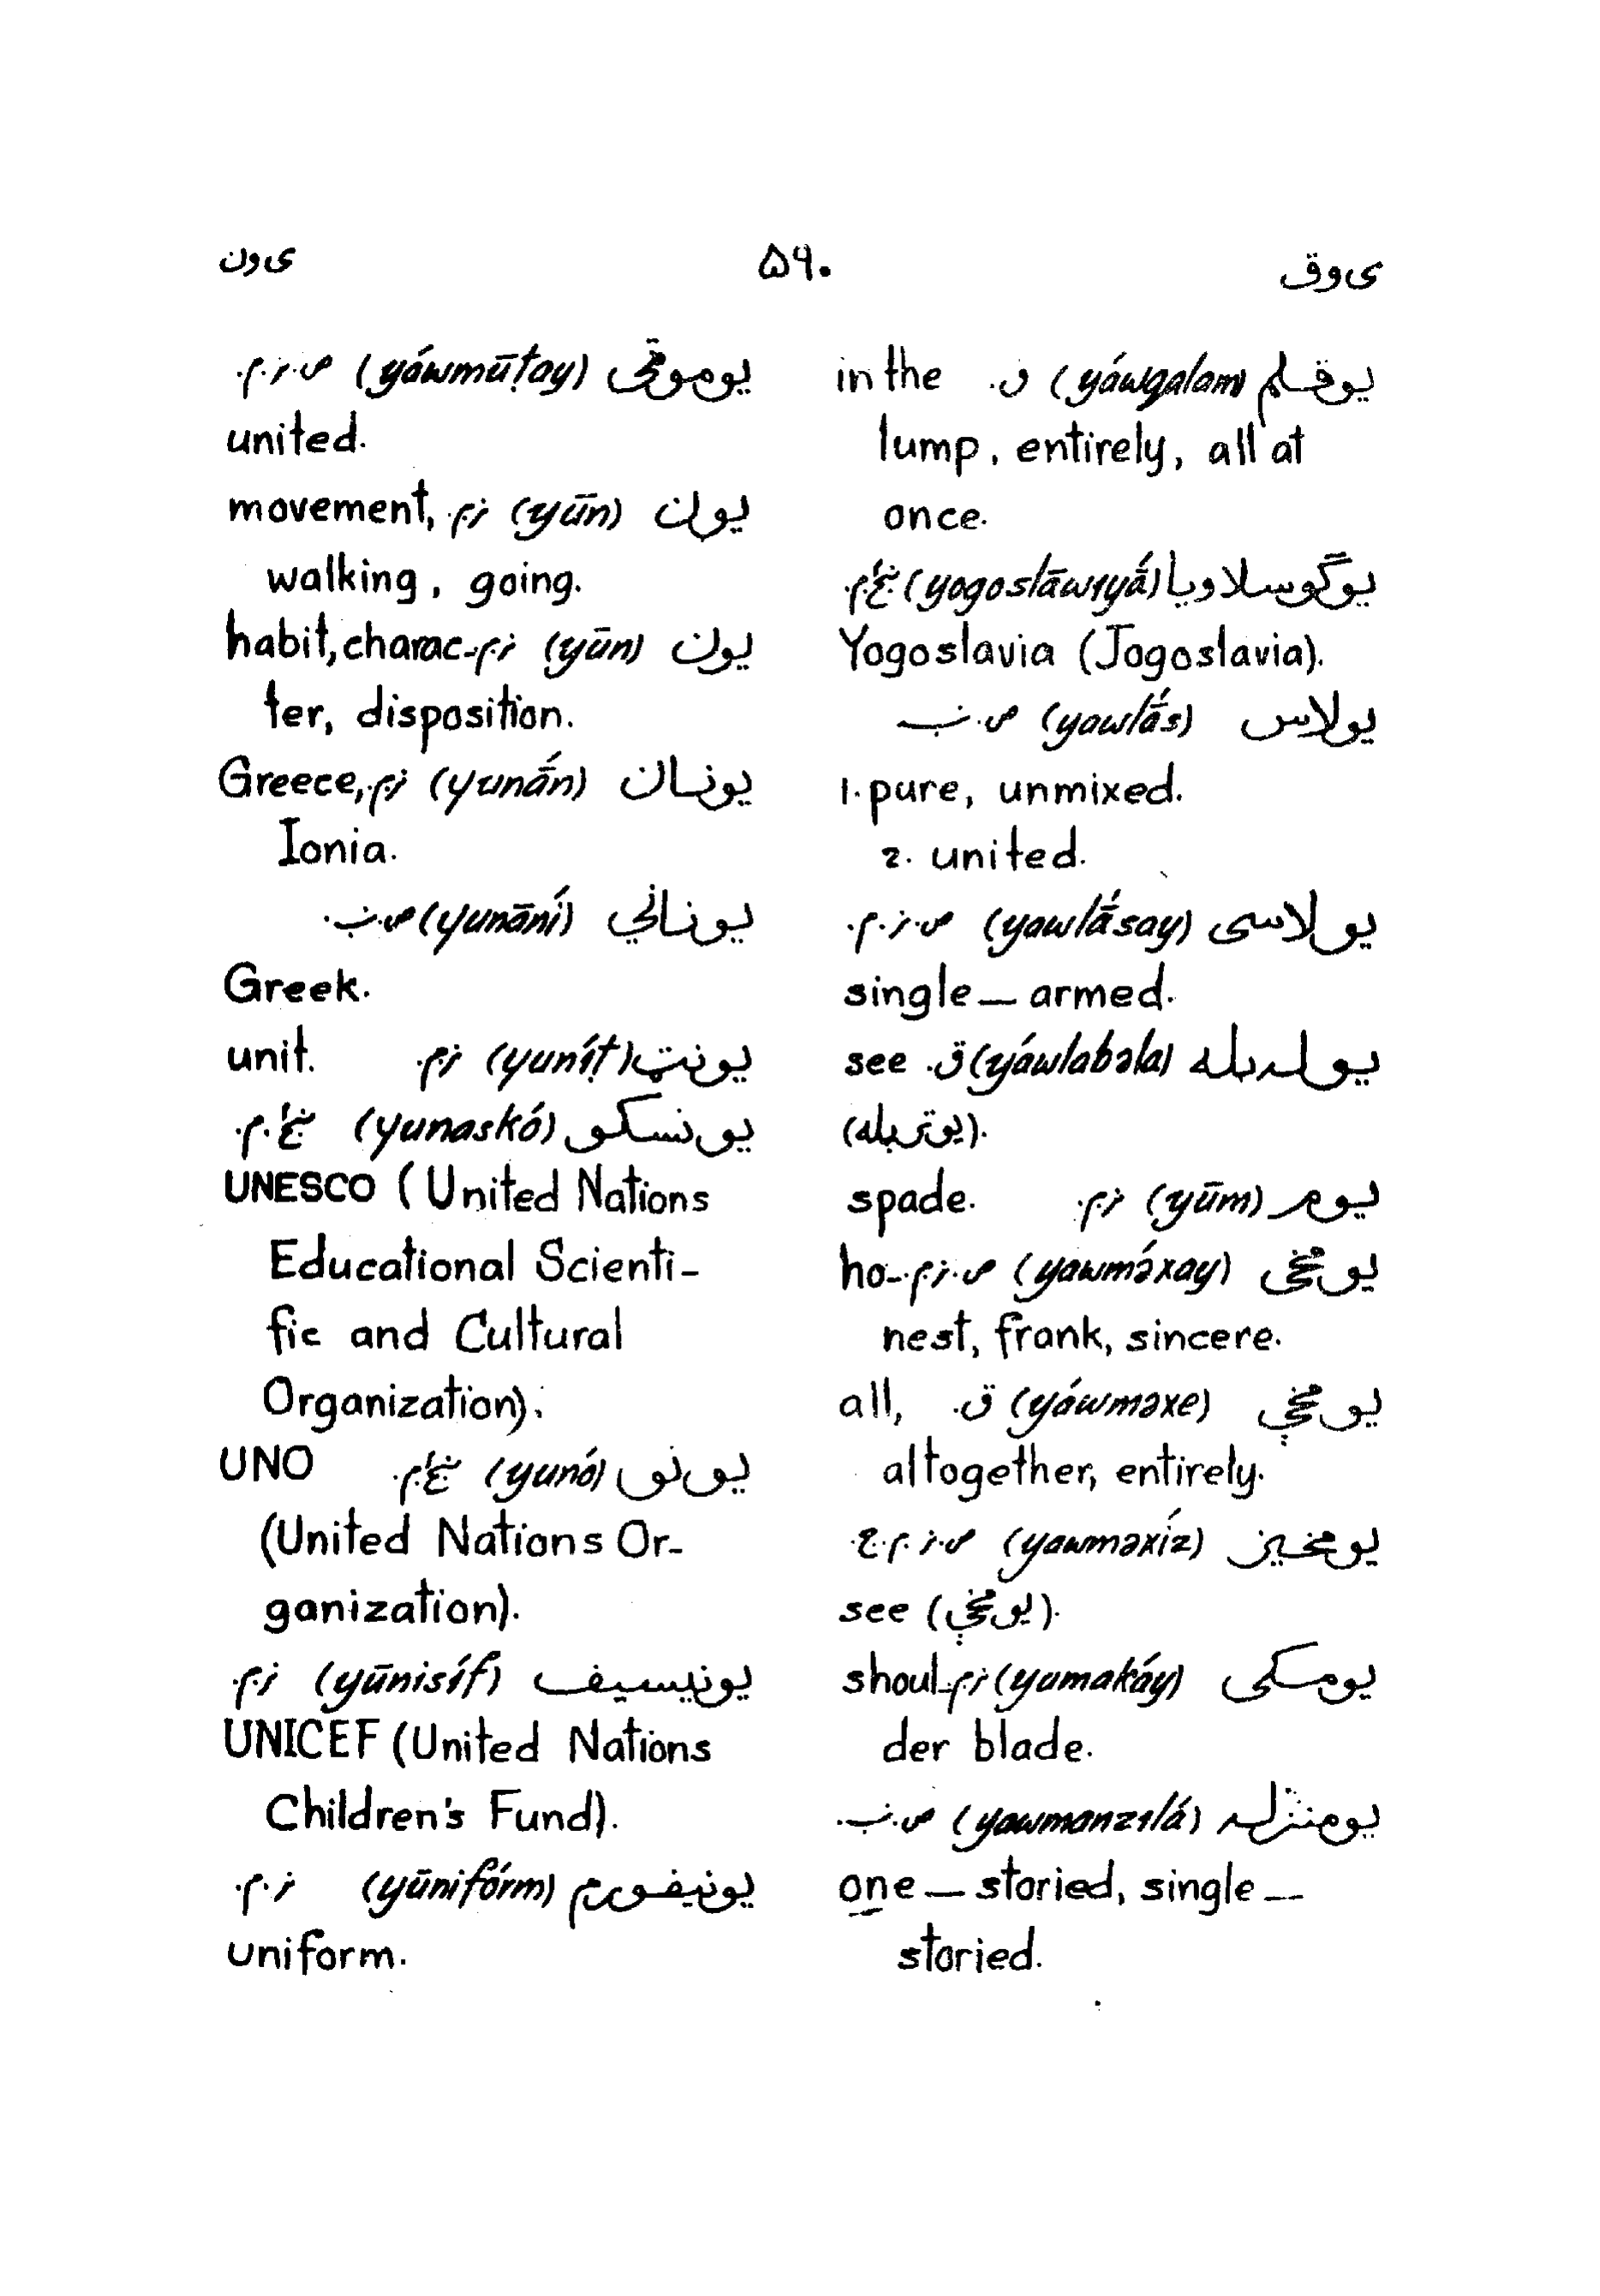 ی و ق ۵۶۰ ی و ن
یوقلم (yáwqalam) ق. in the
lump, entirely, all at
once.
یوگوسلاویا (yogoslāwıyā́) ښځ.ا.م.
Yogoslavia (Jogoslavia).
یولاس (yawlā́s) ص.ب
1. pure, unmixed.
2. united.
یولاسی (yawlā́say) ص.ز.م.
single—armed.
یولەبله (yáwlabəla) ق. see
(یوتربله).
یوم (yūm) ز.م. spade.
یومخی (yawmə́xay) ص.ز.م. ho-
nest, frank, sincere.
یومخې (yáwməxe) ق. all,
altogether, entirely.
یومخیز (yawməxíz) ص.ز.م.ج.
see (یومخې).
یومکی (yumakáy) ز.م. shoul-
der blade.
یومنزله (yawmanzılá) ص.ب.
one—storied, single—
storied.
یوموټی (yáwmūṭay) ص.ز.م.
united.
یون (yūn) ز.م. movement,
walking, going.
یون (yūn) ز.م. habit, charac-
ter, disposition.
یونان (yunā́n) ز.م. Greece,
Ionia.
یوناني (yunāní) ص.ب.
Greek.
یونټ (yuníṭ) ز.م. unit.
یونسکو (yunaskó)
UNESCO (United Nations
Educational Scienti-
fic and Cultural
Organization).
یونو (yunó) UNO
(United Nations Or-
ganization).
یونیسیف (yūnisíf) ز.م.
UNICEF (United Nations
Children's Fund).
یونیفورم (yūnifórm) ز.م.
uniform.